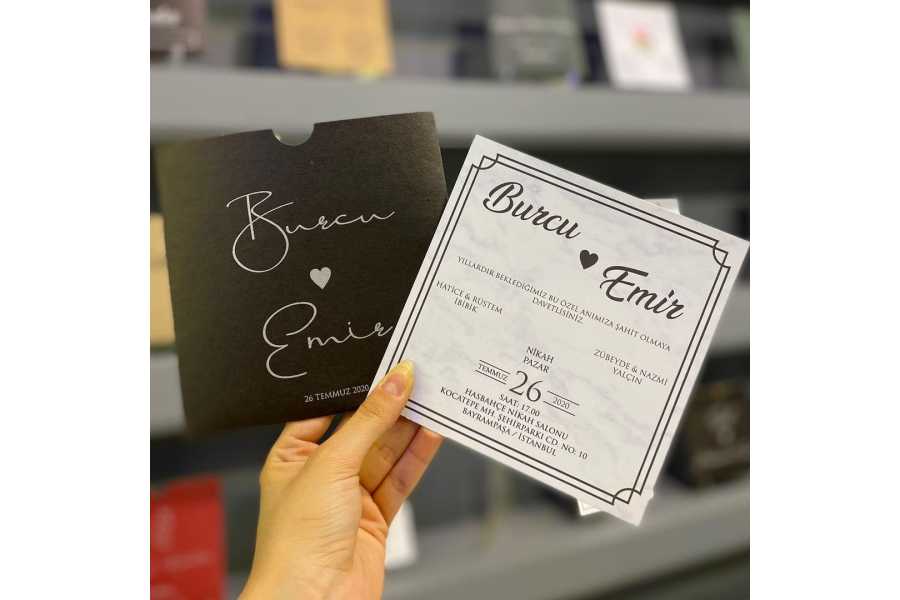 Burcu
Emir
26 TEMMUZ 2020
Burcu
Emir
YILLARDIR BEKLEDİĞİMİZ BU ÖZEL ANIMIZA ŞAHİT OLMAYA
DAVETLİSİNİZ.
HATİCE & RÜSTEM
İBİBİK
ZÜBEYDE & NAZMİ
YALÇIN
NİKAH
PAZAR
TEMMUZ 26 2020
SAAT: 17.00
HASBAHÇE NİKAH SALONU
KOCATEPE MH. ŞEHİRPARKI CD. NO: 10
BAYRAMPAŞA / İSTANBUL